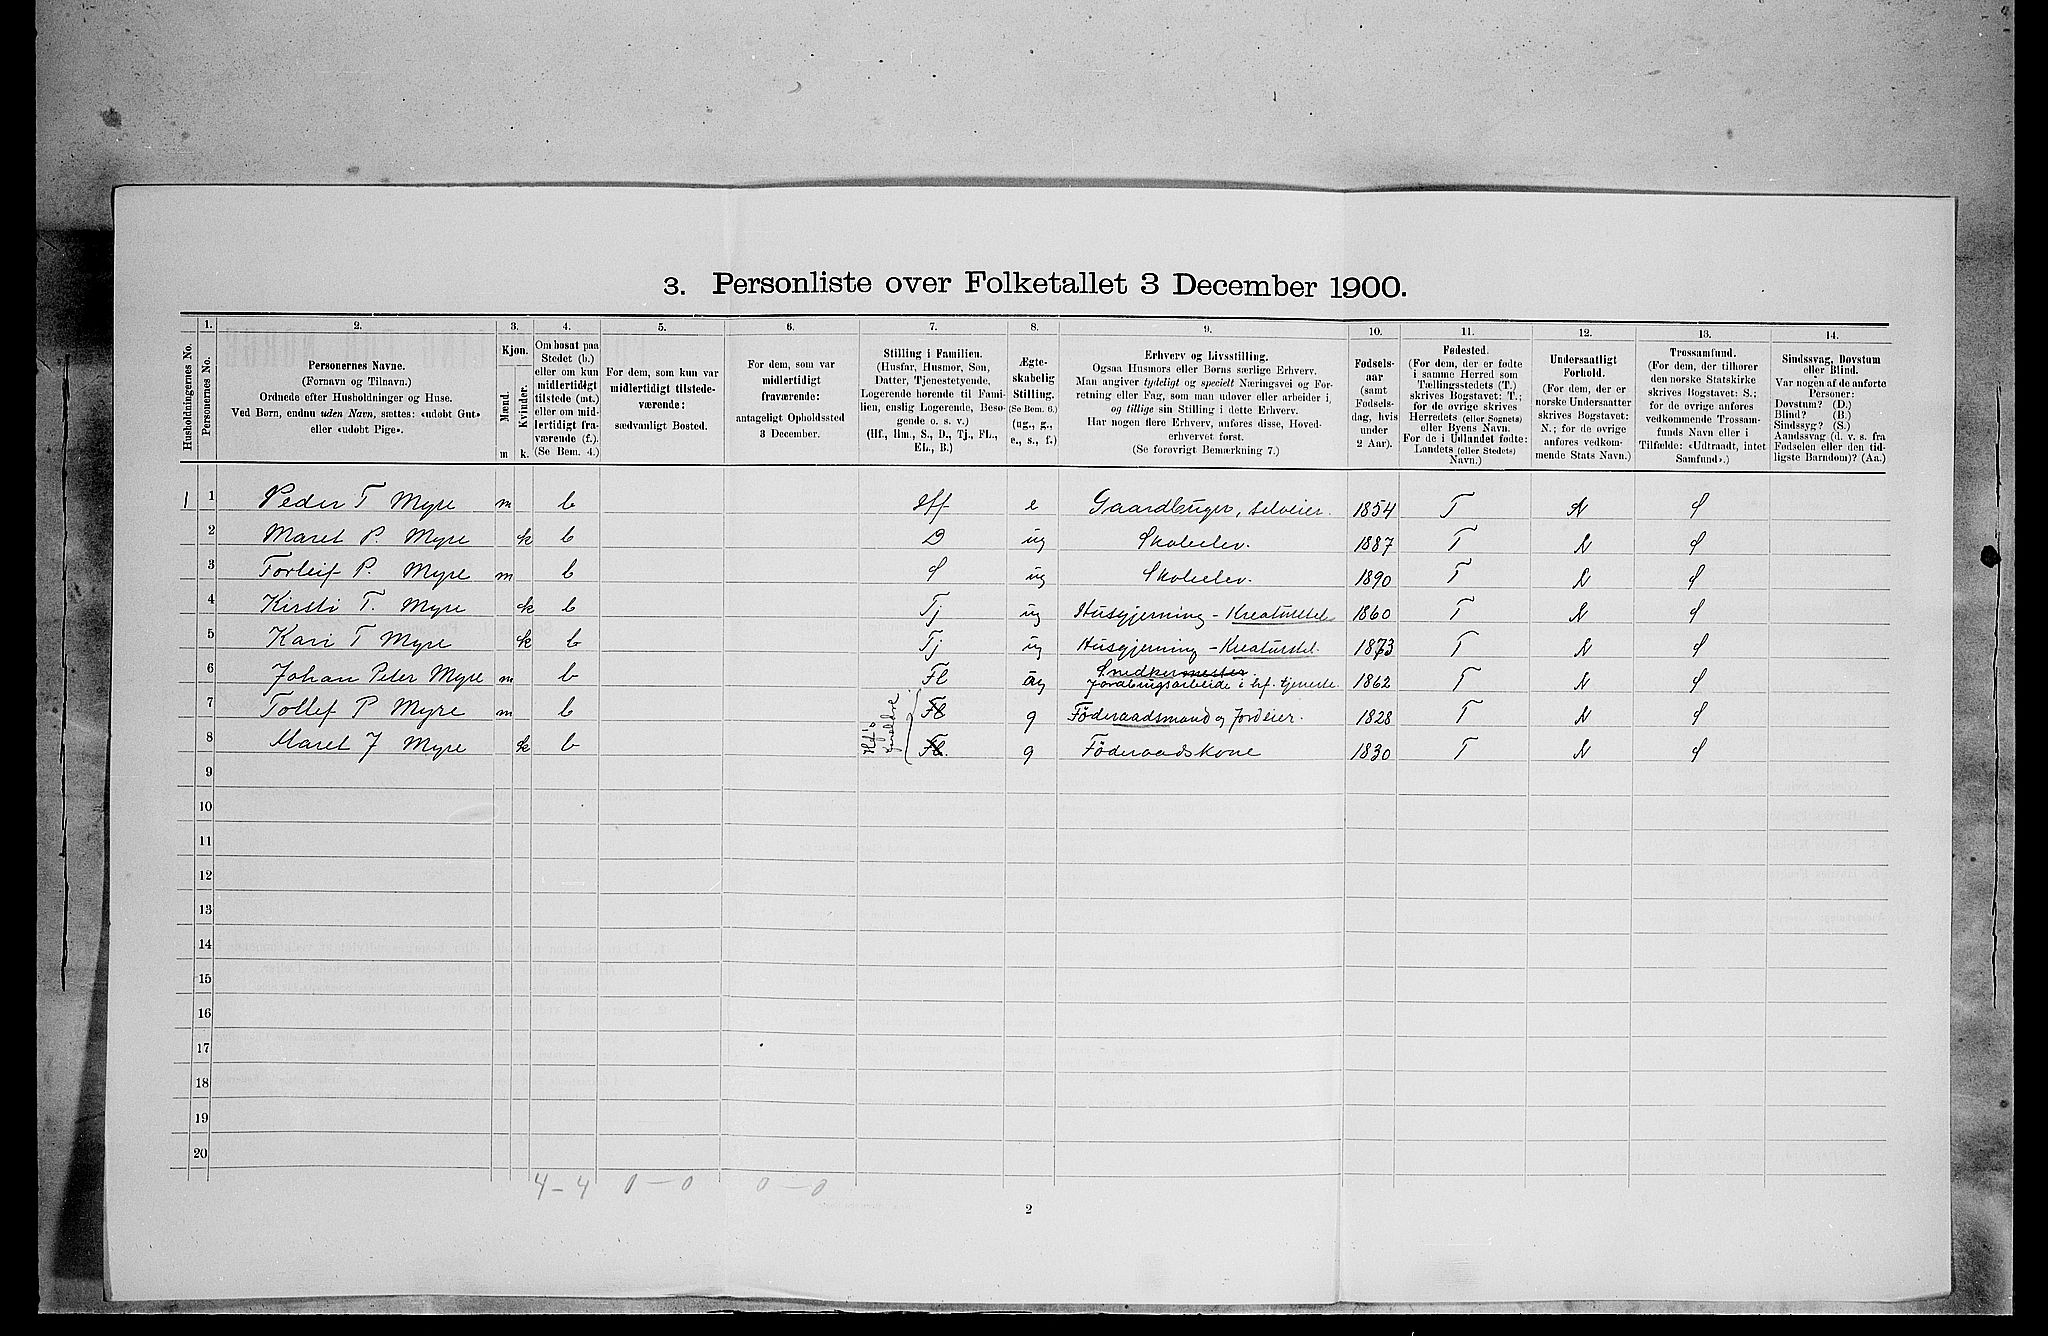 3. Personliste over Folketallet 3 December 1900.
1. 2. 3. 4. 5. 6. 7. 8. 9. 10. 11. 12. 13. 14.
Husholdningernes No.
Personernes No.
Personernes Navne.
(Fornavn og Tilnavn.)
Ordnede efter Husholdninger og Huse.
Ved Børn, endnu uden Navn, sættes: «udøbt Gut»
eller «udøbt Pige».
Kjøn.
Mænd.
Kvinder.
m k.
Om bosat paa
Stedet (b.)
eller om kun
midlertidigt
tilstede (mt.)
eller om mid-
lertidigt fra-
værende (f.).
(Se Bem. 4.)
For dem, som kun var
midlertidigt tilstede-
værende:
sædvanligt Bosted.
For dem, som var
midlertidigt
fraværende:
antageligt Opholdssted
3 December.
Stilling i Familien.
(Husfar, Husmor, Søn,
Datter, Tjenestetyende,
Logerende hørende til Fami-
lien, enslig Logerende, Besø-
gende o. s. v.)
(Hf., Hm., S., D., Tj., FL.,
EL., B.)
Ægte-
skabelig
Stilling.
(Se Bem. 6.)
(ug., g.,
e., s., f.)
Erhverv og Livsstilling.
Ogsaa Husmors eller Børns særlige Erhverv.
Man angiver tydeligt og specielt Næringsvei og For-
retning eller Fag, som man udover eller arbeider i,
og tillige sin Stilling i dette Erhverv.
Har nogen flere Erhverv, anføres disse, Hoved-
erhvervet først.
(Se forøvrigt Bemærkning 7.)
Fødsels-
aar
(samt
Fødsels-
dag, hvis
under
2 Aar).
Fødested.
(For dem, der er fødte
i samme Herred som
Tællingsstedets (T.)
skrives Bogstavet: T.;
for de øvrige skrives
Herredets (eller Sognets)
eller Byens Navn.
For de i Udlandet fødte:
Landets (eller Stedets)
Navn.)
Undersaatligt
Forhold.
(For dem, der er
norske Undersaatter
skrives Bogstavet:
N.; for de øvrige
anføres vedkom-
mende Stats Navn.)
Trossamfund.
(For dem, der tilhører
den norske Statskirke
skrives Bogstavet: S.;
for de øvrige anføres
vedkommende Trossam-
funds Navn eller i
Tilfælde: «Udtraadt, intet
Samfund».)
Sindssvag, Døvstum
eller Blind.
Var nogen af de anførte
Personer:
Døvstum? (D.)
Blind? (B.)
Sindssyg? (S.)
Aandssvag (d. v. s. fra
Fødselen eller den tid-
ligste Barndom)? (Aa.)
1 1 Peder T Myre m b Hf e Gaardbruger, selveier. 1854 T N S
2 Maret P. Myre k b D ug Skoleelev. 1887 T N S
3 Torleif P. Myre m b S ug Skoleelev. 1890 T N S
4 Kirsti T. Myre k b Tj ug Husgjerning - Kreaturstel 1860 T N S
5 Kari T Myre k b Tj ug Husgjerning - Kreaturstel. 1873 T N S
6 Johan Peter Myre m b Fl ug Snedkermester.
Jordbrugsarbeide i hf. tjeneste. 1862 T N S
7 Tollef P Myre m b Fl g Föderaadsmand og Jordeier. 1828 T N S
Hf's
foreldre
8 Maret J Myre k b Fl. g Föderaadskone 1830 T N S
9
10
11
12
13
14
15
16
17
18
19
20
4 - 4 0 - 0 0 - 0
2